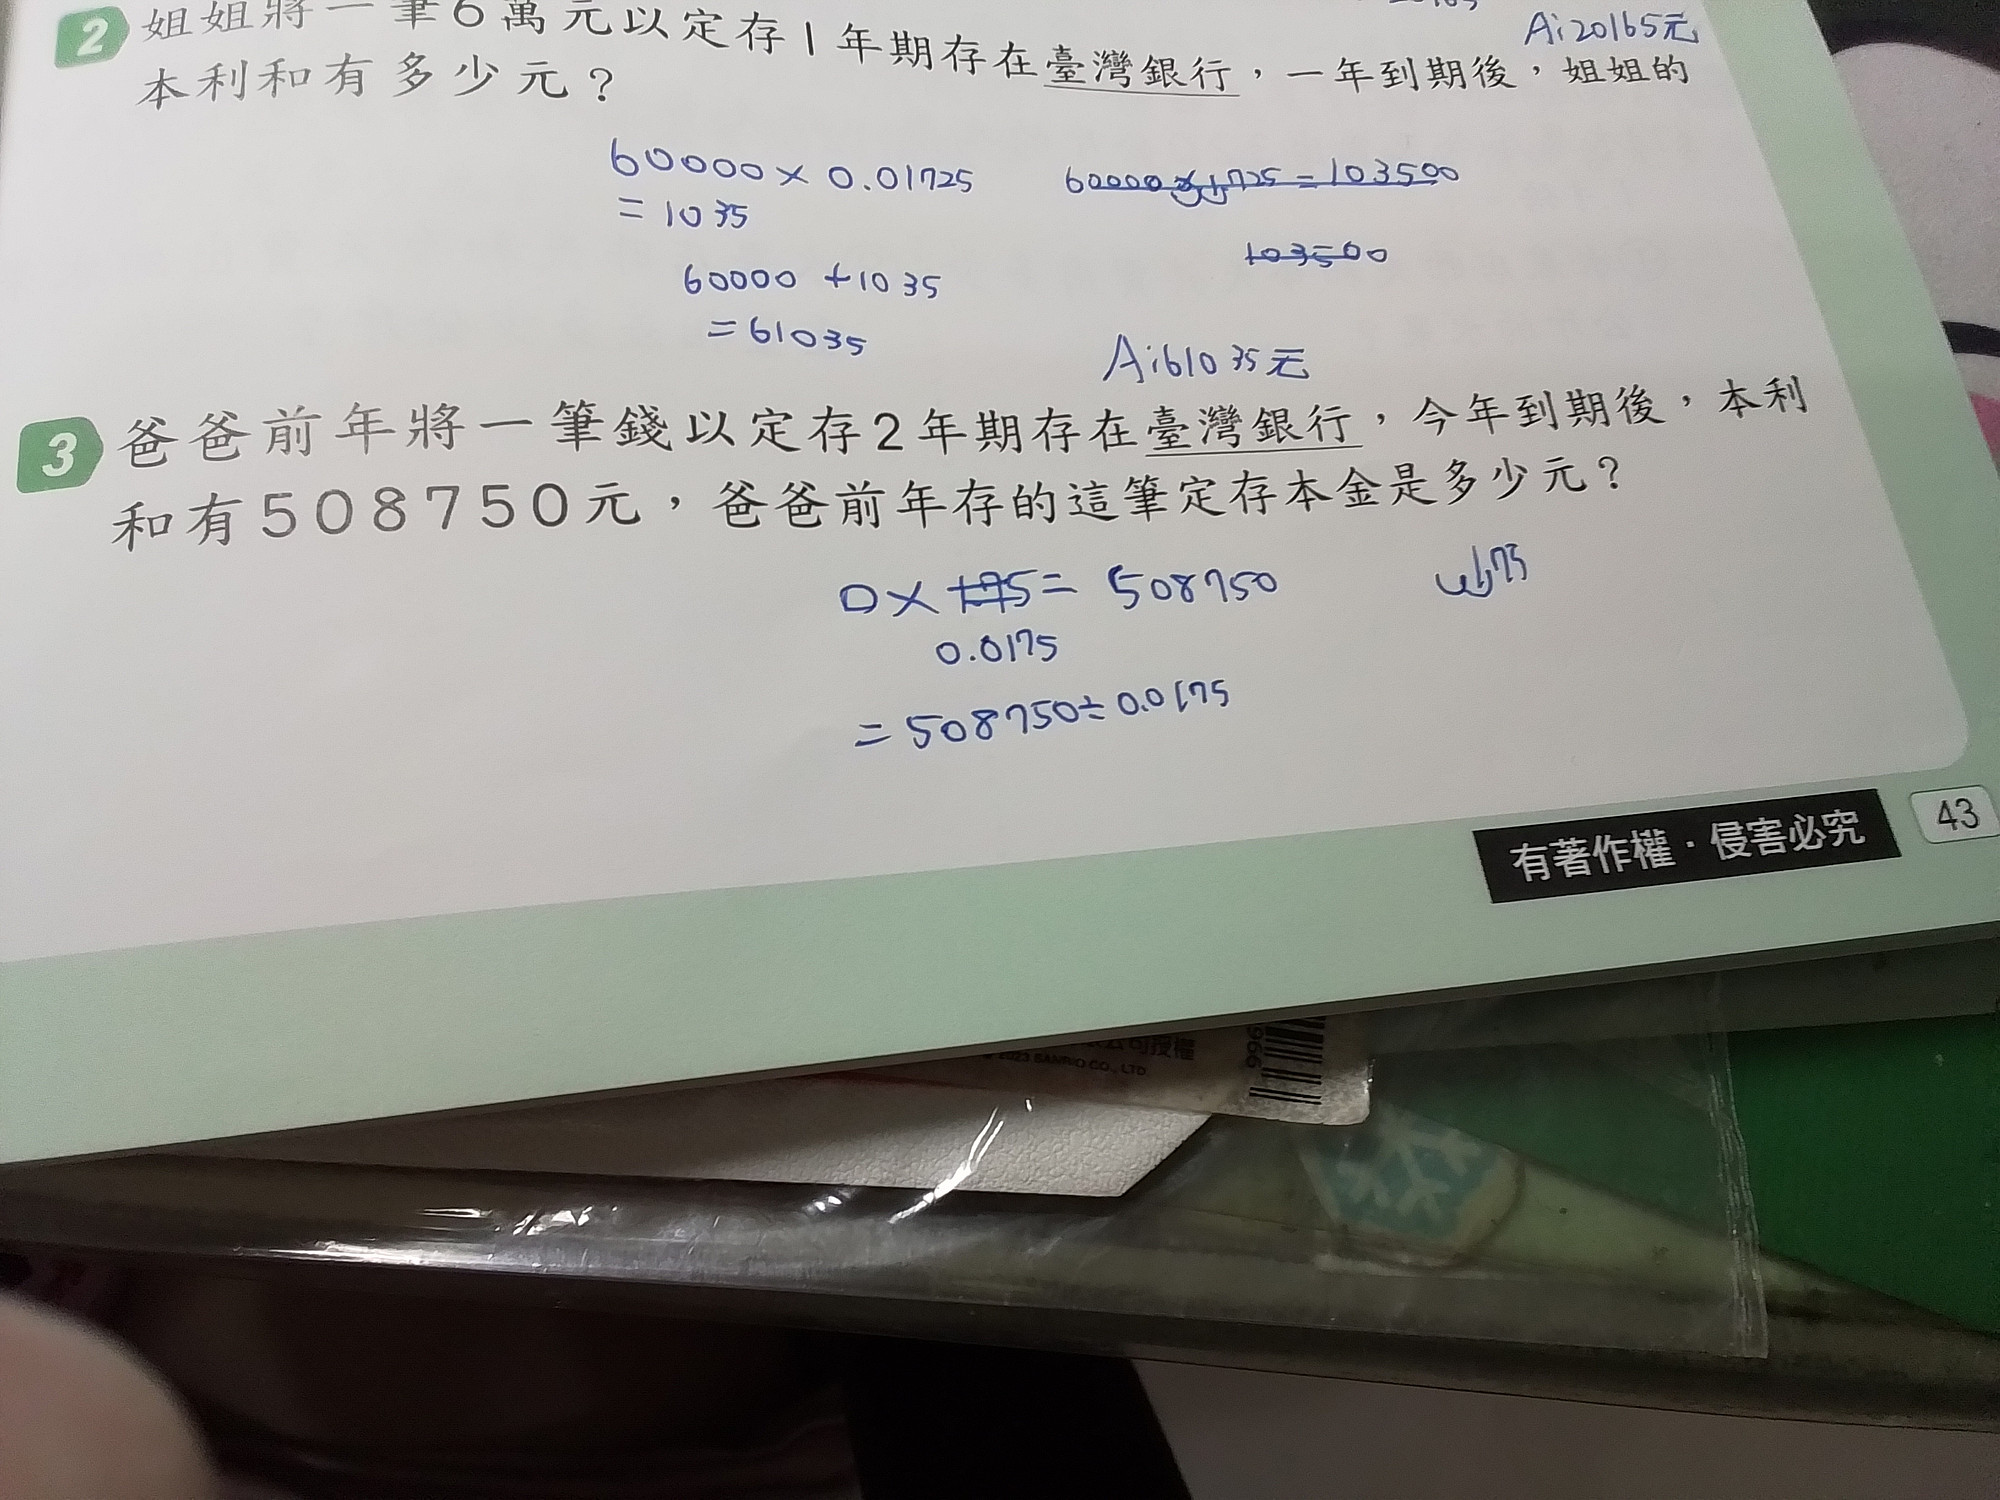 A:20165元
2 姐姐將一筆6萬元以定存1年期存在臺灣銀行，一年到期後，姐姐的
本利和有多少元？
60000×0.01725
=1035
60000+1035
=61035
60000×1.725=103500
103500
A:61035元
3 爸爸前年將一筆錢以定存2年期存在臺灣銀行，今年到期後，本利
和有508750元，爸爸前年存的這筆定存本金是多少元？
□×1.75=508750
0.0175
=508750÷0.0175
1.75
有著作權·侵害必究
43
公司授權
© 2023 SANRIO CO., LTD
966